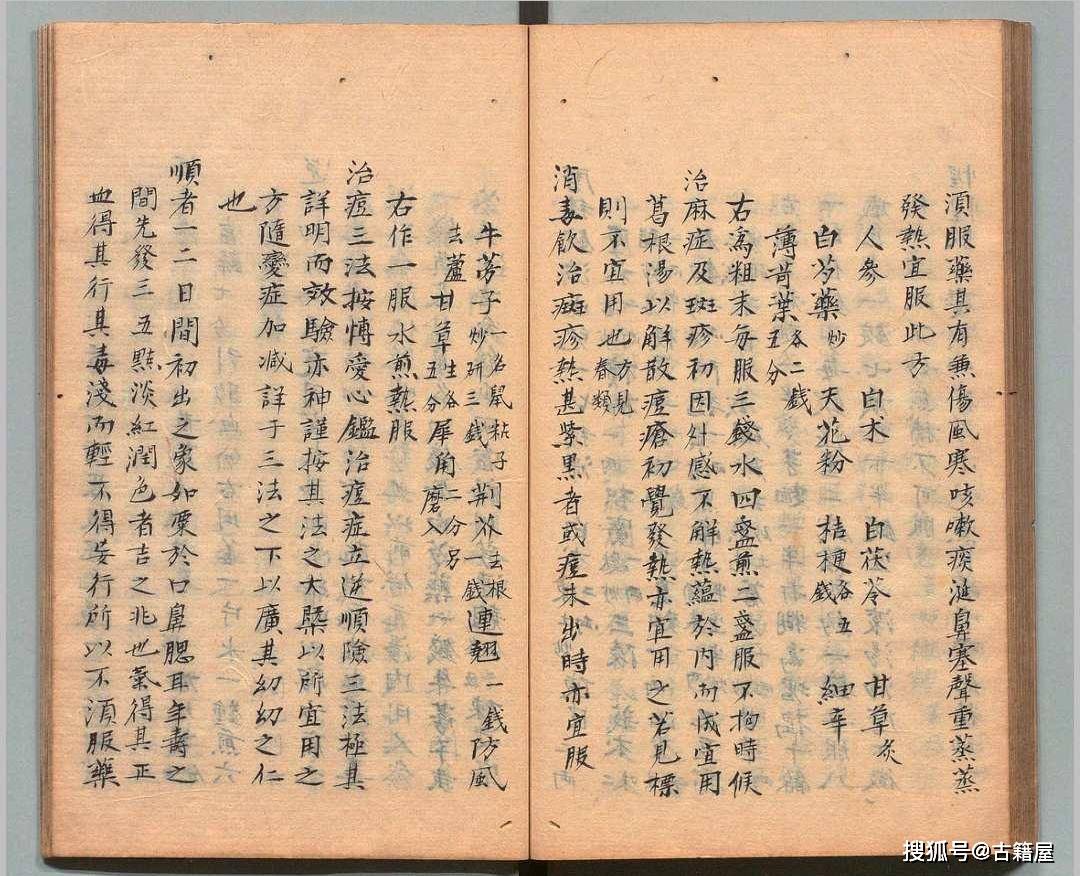 須服藥其有兼傷風寒咳嗽痰涎鼻塞聲重蒸蒸
發熱宜服此方
人參　白朮　白茯苓　甘草炙
白芍藥炒　天花粉二　桔梗各五錢　細辛
薄荷葉各二錢五分
右為粗末每服三錢水四盞煎二盞服不拘時候
治麻症及斑疹初因外感不解熱蘊於内而成宜用
葛根湯以解散痘瘡初覺發熱亦宜用之若見標
則不宜用也方見春類
消毒飲治斑疹熱甚紫黑者或痘未出時亦宜服
牛蒡子一名鼠粘子炒研三錢荆芥去根一錢連翹一錢防風
去蘆甘草生各五分犀角二分另磨入
右作一服水煎熱服
治痘三法按博愛心鑑治痘症立逆順險三法極其
詳明而效驗亦神謹按其法之大槩以所宜用之
方隨變症加减詳于三法之下以廣其幼幼之仁
也
順者一二日間初出之象如粟於口鼻腮耳年壽之
間先發三五㸃淡紅潤色者吉之兆也氣得其正
血得其行其毒淺而輕不得妄行所以不須服藥
搜狐号@古籍屋